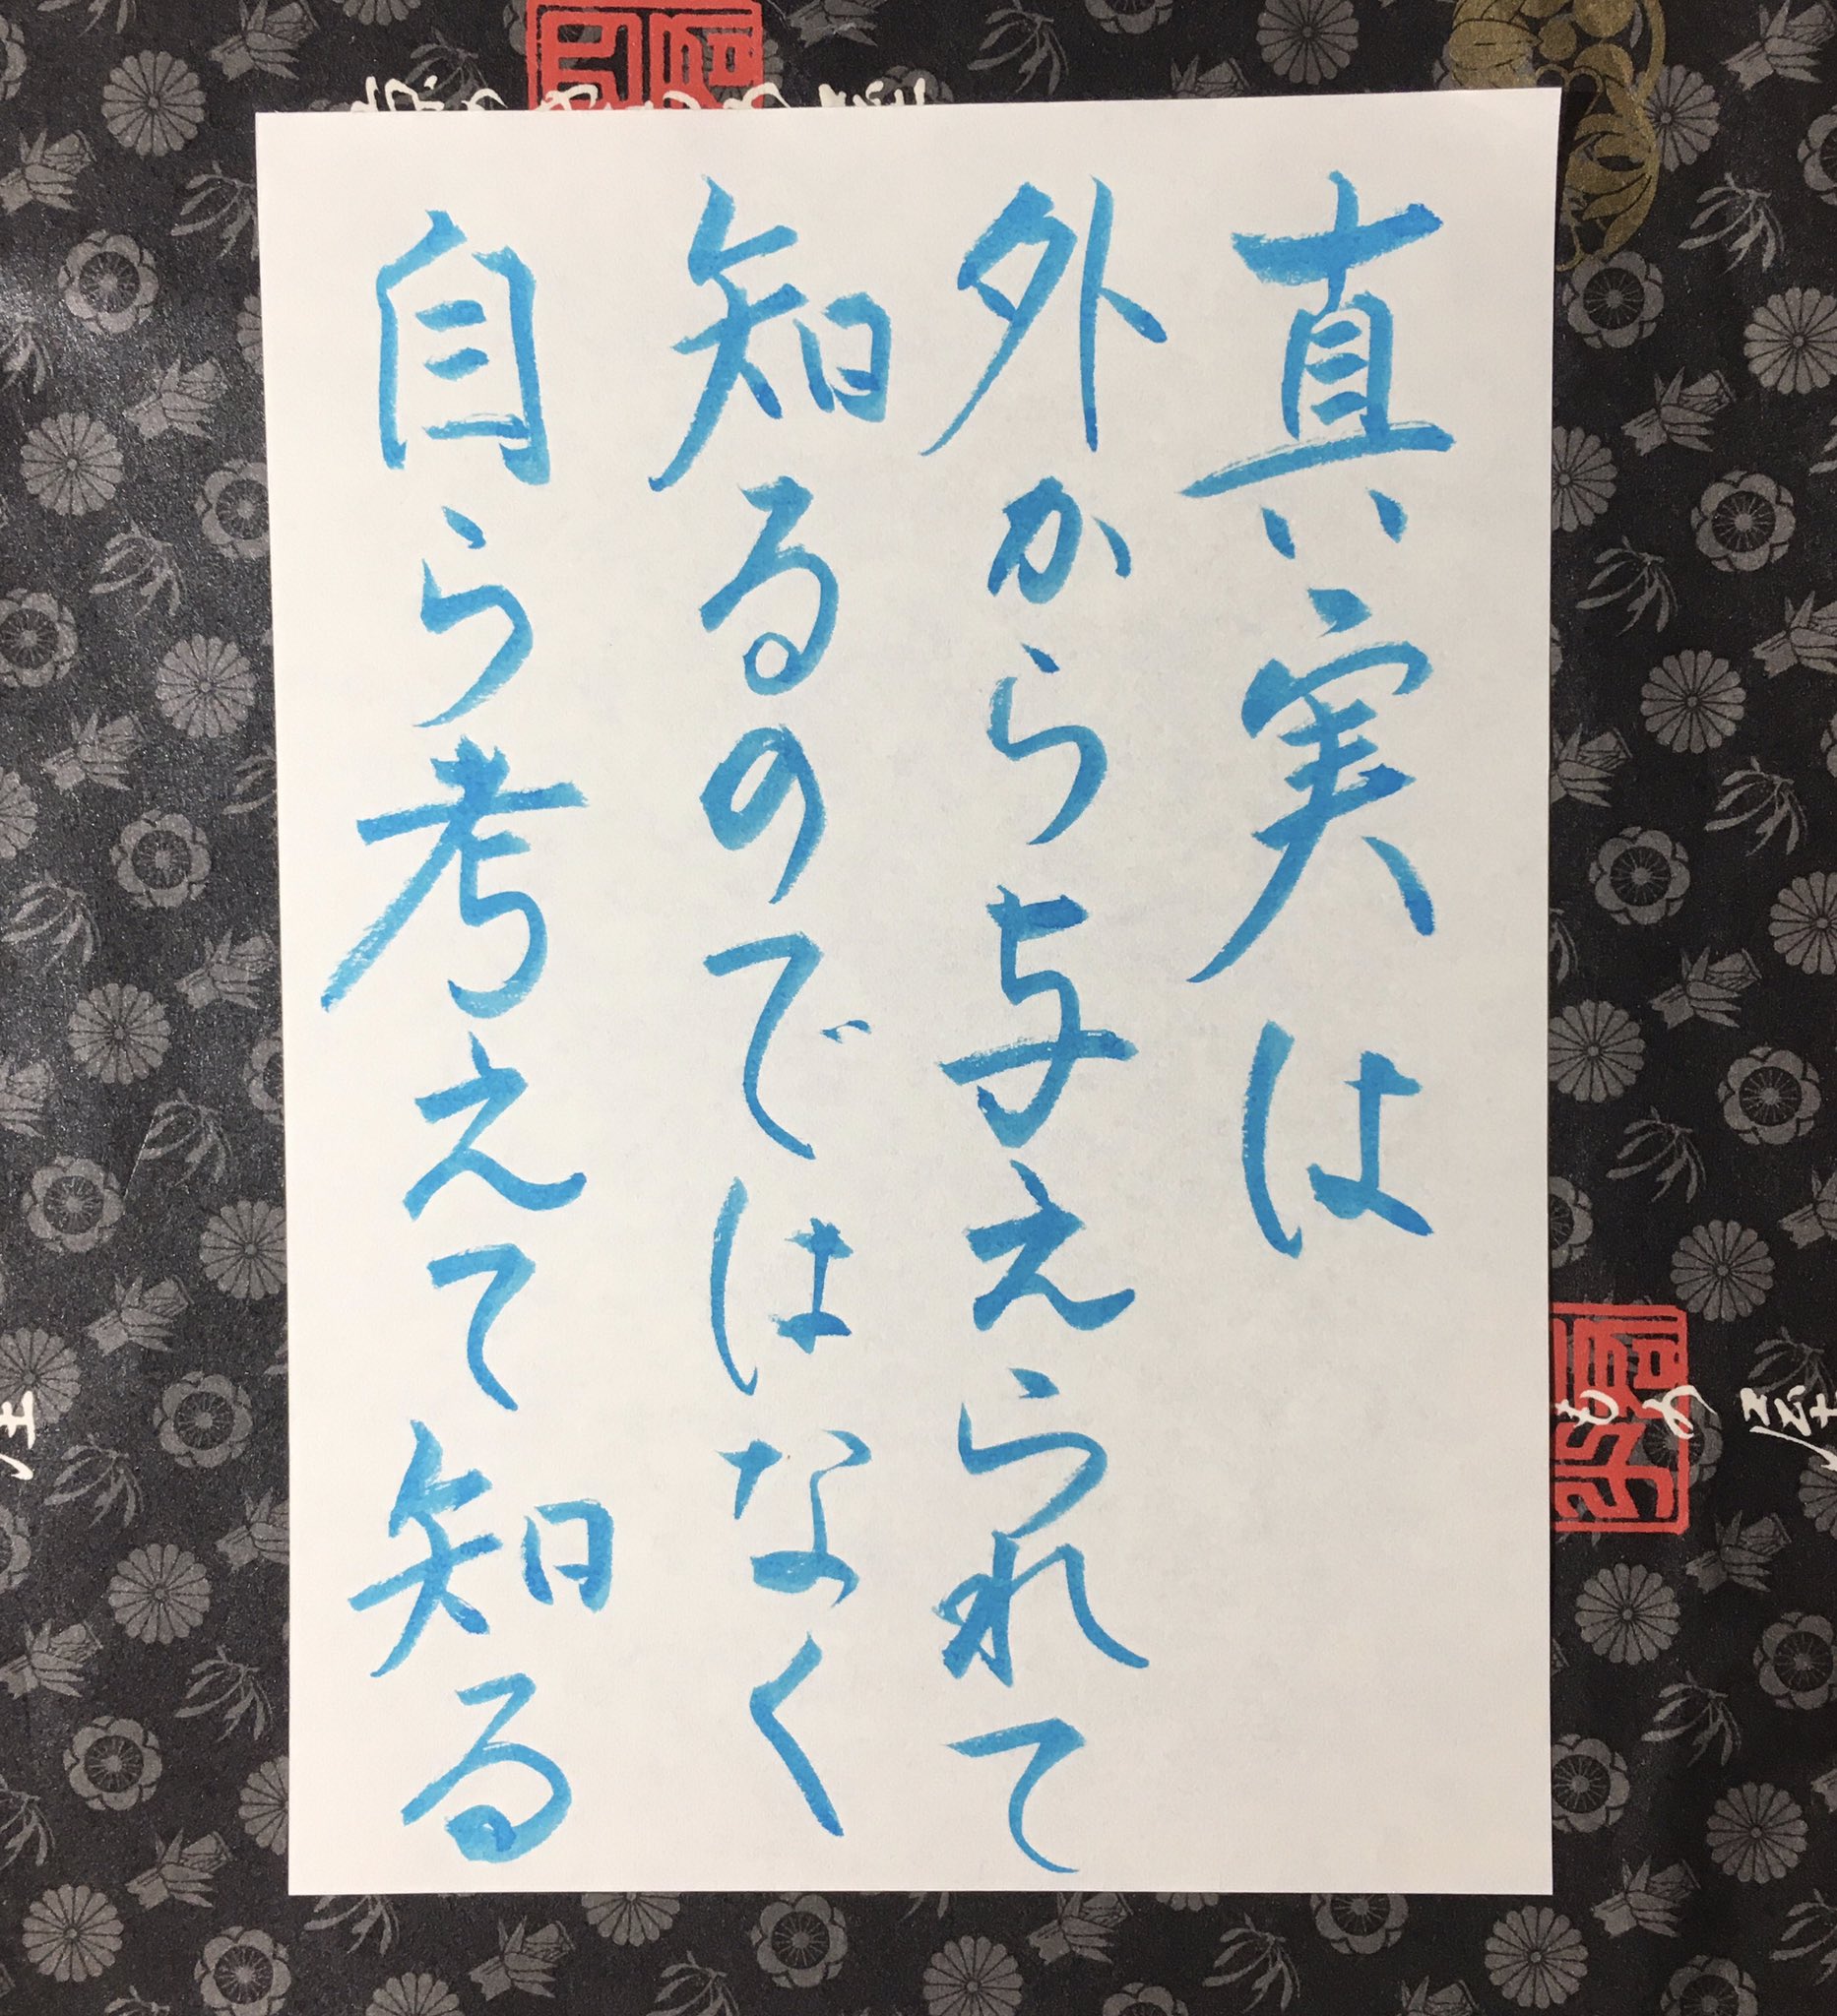 真実は
外から与えられて
知るのではなく
自ら考えて知る